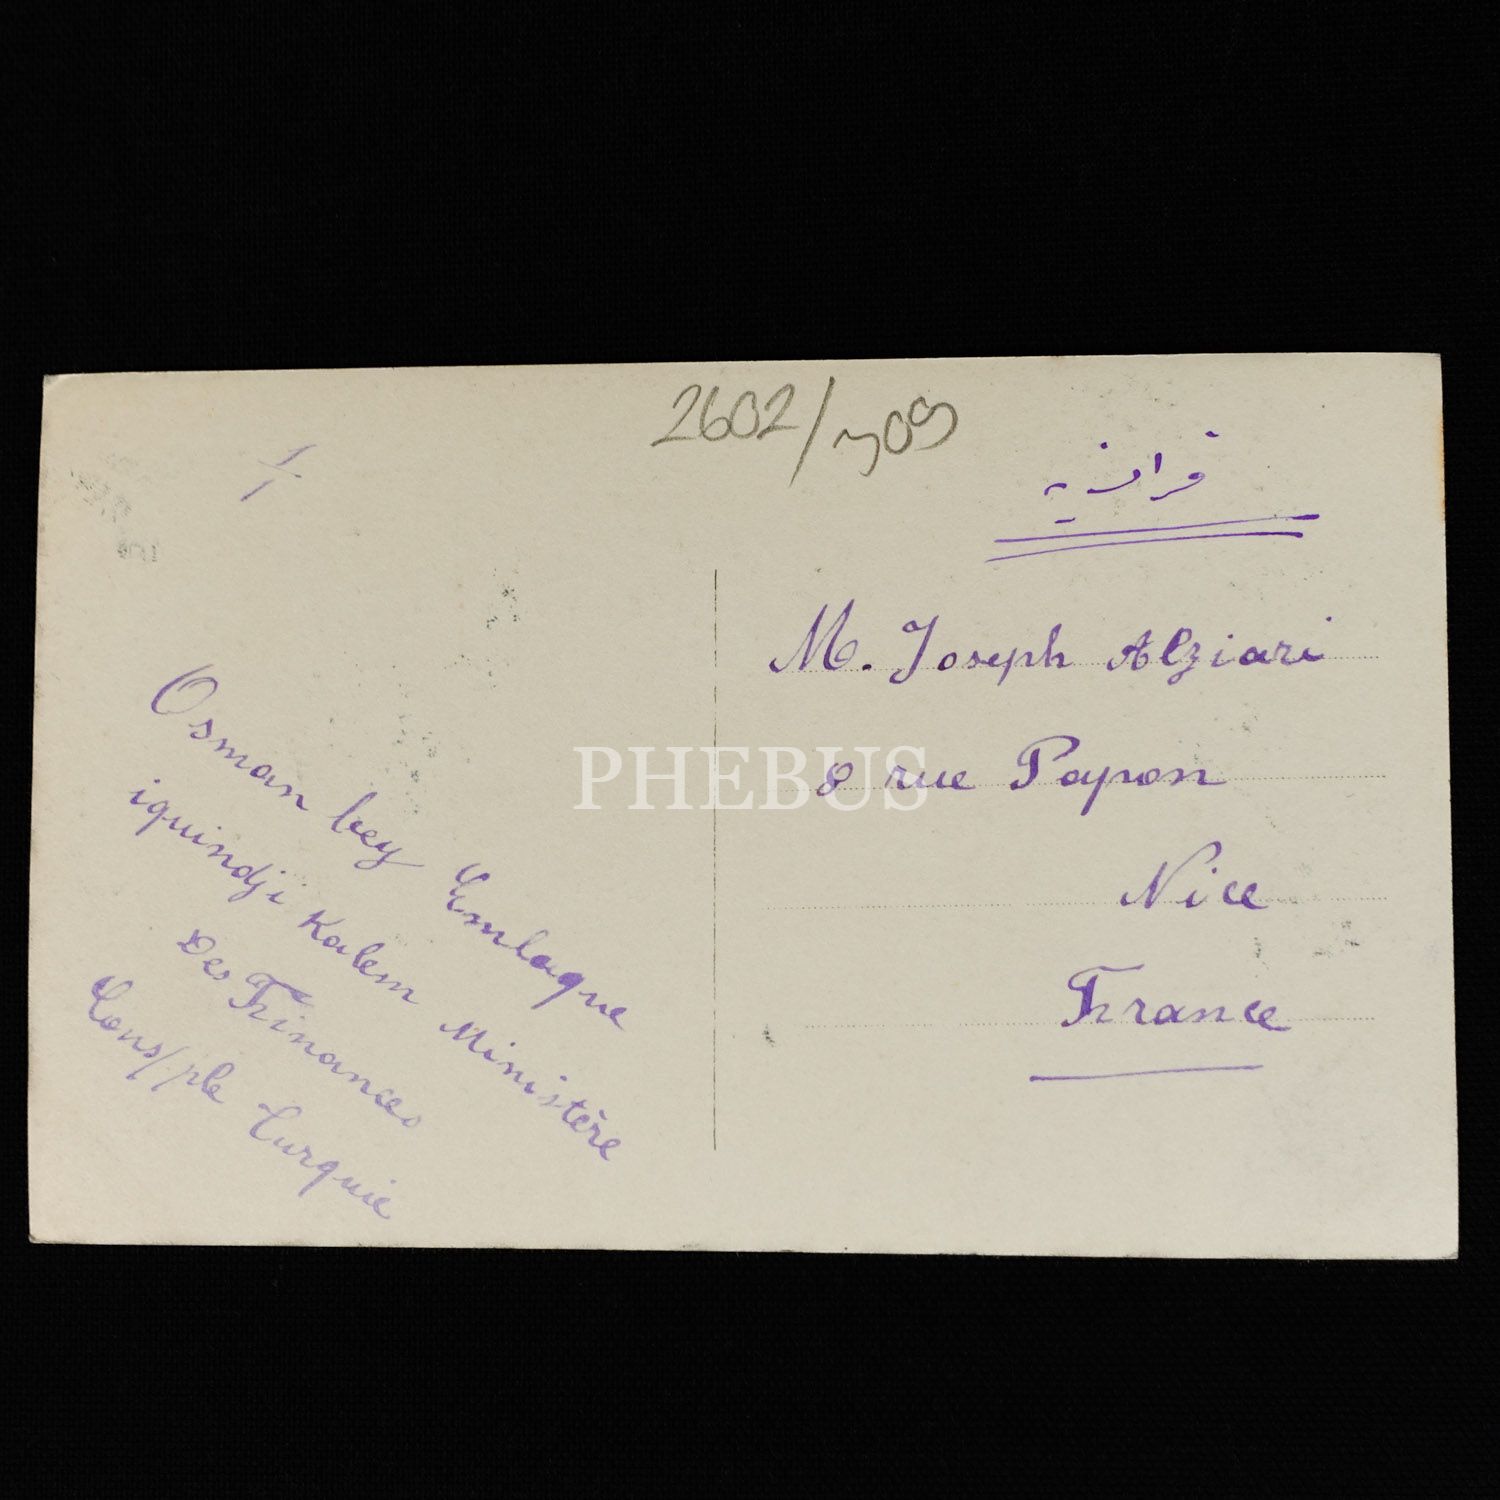 2602/309
1/1
فرانسه
M. Joseph Alziari
8 rue Papon
Nice
France
Osman bey Emlaque
iquindji Kalem Ministère
Des Finances
Cons/ple Turquie
PHEBUS